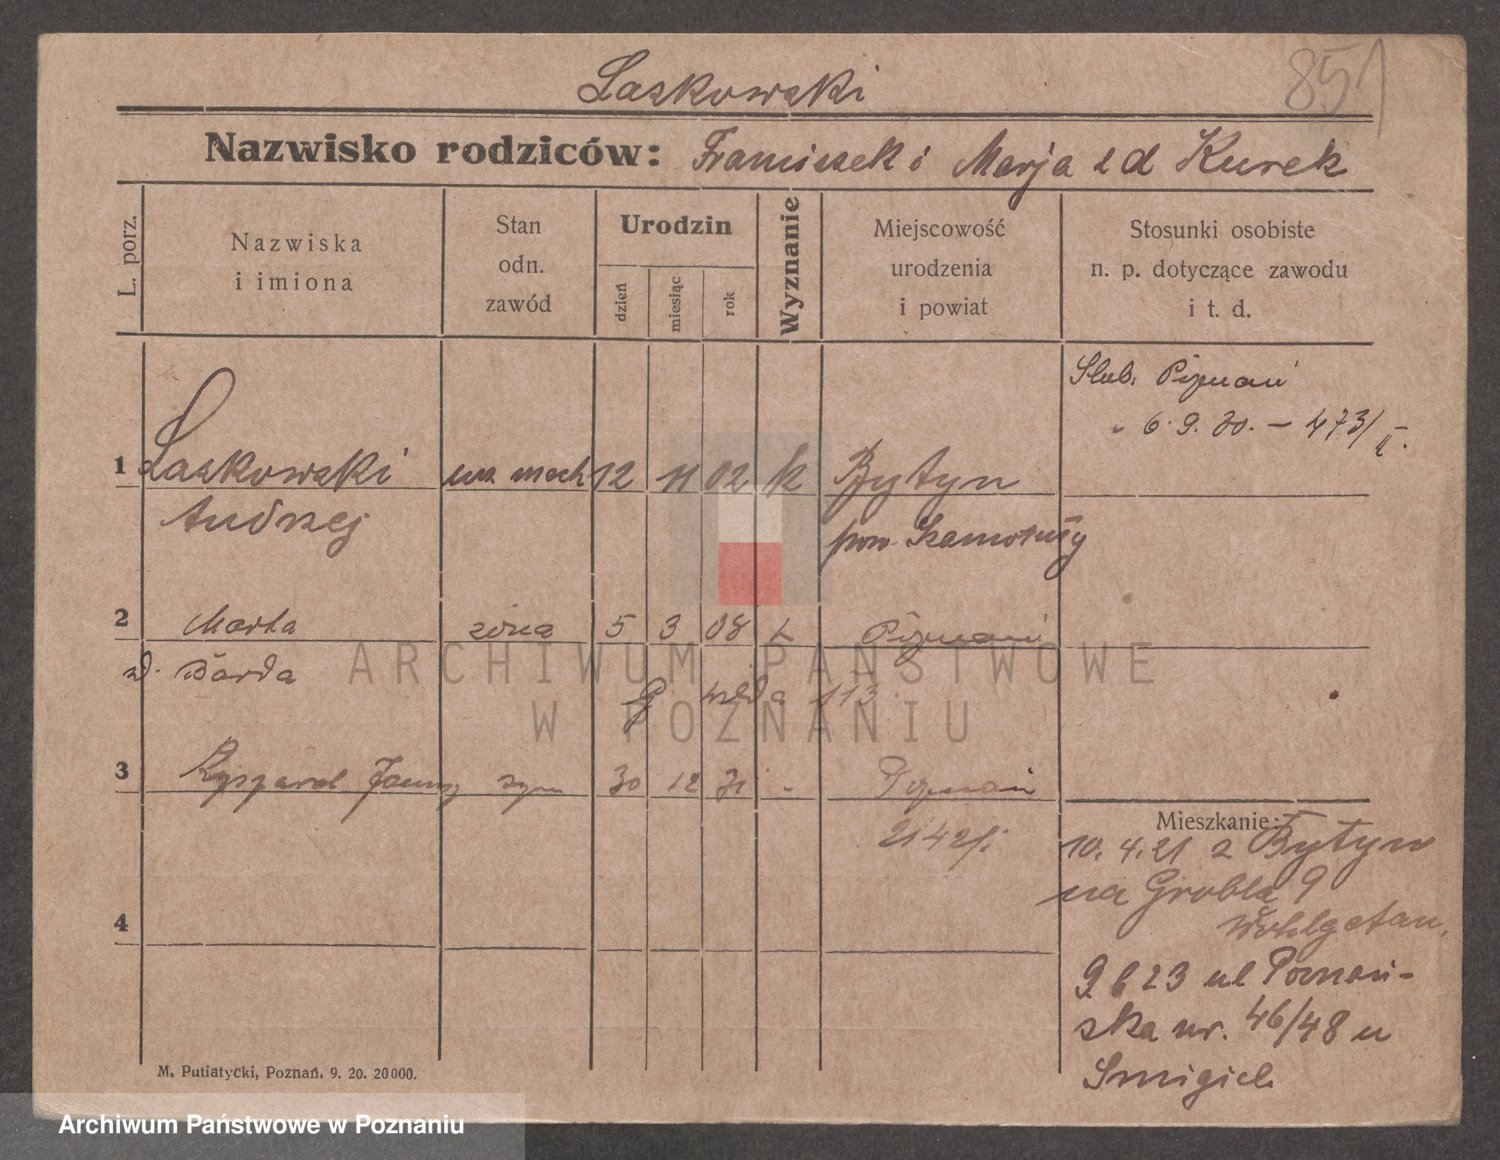 Laskowski
851
Nazwisko rodziców: Franciszek i Marja z d Kurek
L. porz.
Nazwiska
i imiona
Stan
odn.
zawód
Urodzin
dzień
miesiąc
rok
Wyznanie
Miejscowość
urodzenia
i powiat
Stosunki osobiste
n. p. dotyczące zawodu
i t. d.
Slub. Poznań
6.9.30. – 473/II.
1 Laskowski 12 11 02 k Bytyn
Andrzej pow Szamotuły
2 Marta żona 5 3 08 k Poznań
d. Barda
G Wilda 113
3 Ryszard Janusz syn 30 12 31 - Poznań
2142/
Mieszkanie:
10.4.21 z Bytyn
na Grobla 9
Wohlgetan,
4
9 6 23 ul Poznań-
ska nr. 46/48 u
Smigiel
M. Putiatycki, Poznań. 9. 20. 20000.
ARCHIWUM PAŃSTWOWE
W POZNANIU
Archiwum Państwowe w Poznaniu